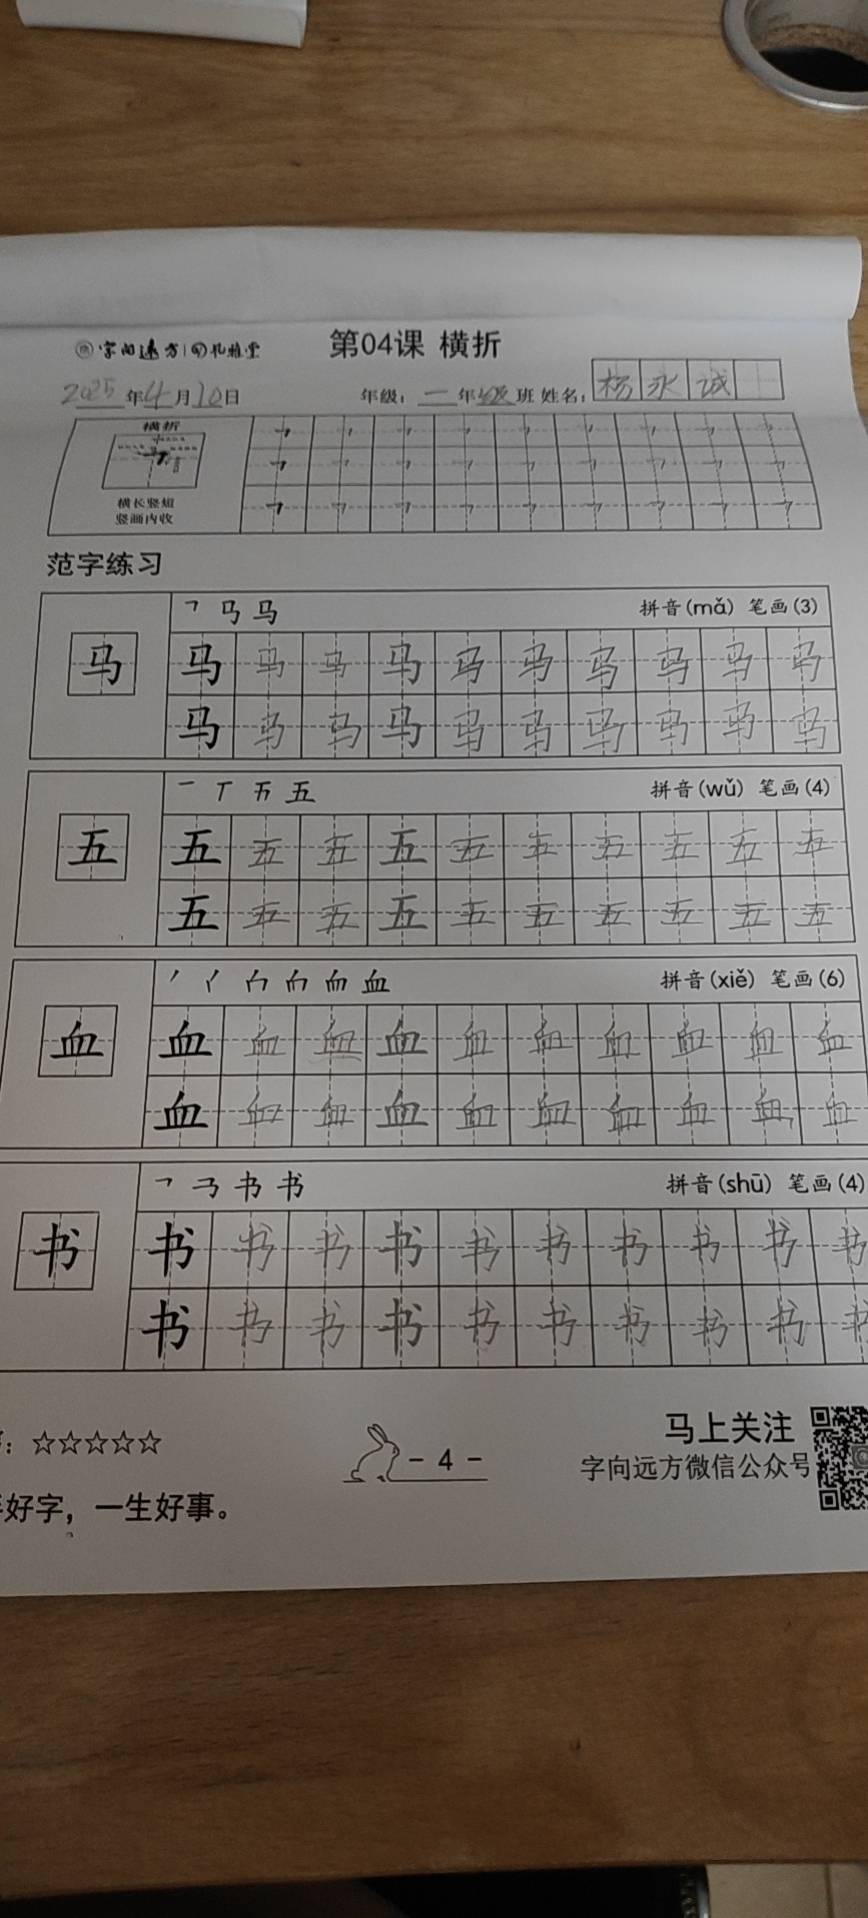 字向远方 孔雅堂 第04课 横折
2025年4月10日 年级：一年级班 姓名：杨永诚
横折
横长竖短
竖画内收
范字练习
㇕ 马 马 拼音(mǎ) 笔画(3)
马 马 马 马 马 马 马 马 马 马 马
马 马 马 马 马 马 马 马 马 马
一 丁 五 五 拼音(wǔ) 笔画(4)
五 五 五 五 五 五 五 五 五 五 五
五 五 五 五 五 五 五 五 五 五
血 拼音(xiě) 笔画(6)
血 血 血 血 血 血 血 血 血 血 血
血 血 血 血 血 血 血 血 血 血
㇕ 书 书 拼音(shū) 笔画(4)
书 书 书 书 书 书 书 书 书 书 书
书 书 书 书 书 书 书 书 书 书
：☆☆☆☆☆ - 4 - 马上关注
字向远方微信公众号
好字，一生好事。